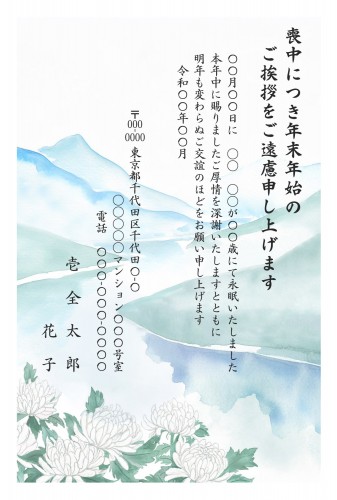 喪中につき年末年始の
ご挨拶をご遠慮申し上げます
〇〇月〇〇日に　〇〇　〇〇が〇〇歳にて永眠いたしました
本年中に賜りましたご厚情を深謝いたしますとともに
明年も変わらぬご交誼のほどをお願い申し上げます
令和〇〇年〇〇月
〒000-0000 東京都千代田区千代田〇-〇
〇〇〇〇〇マンション〇〇〇号室
電話　〇〇〇-〇〇〇-〇〇〇〇
壱 全 太 郎
花 子